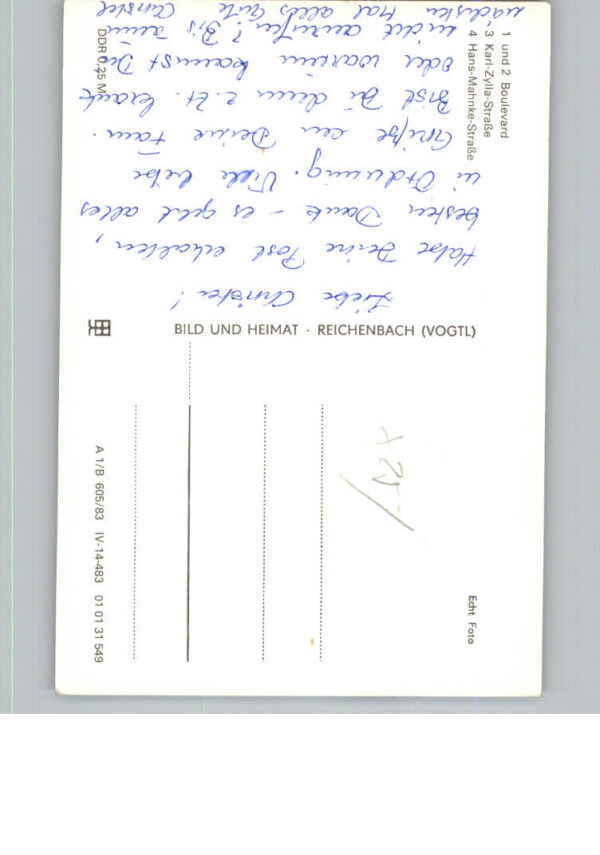 1 und 2 Boulevard
3 Karl-Zylla-Straße
4 Hans-Mahnke-Straße
DDR 0,25 M
Liebe Christa!
Habe Deine Post erhalten,
besten Dank – es geht alles
in Ordnung. Viele liebe
Grüße an Deine Fam.
Bist Du denn z. Zt. krank
oder warum kannst Du
nicht anrufen? Bis zum
nächsten Mal alles Gute
Christel
BILD UND HEIMAT · REICHENBACH (VOGTL)
A 1/B 605/83 IV-14-483 01 01 31 549
Echt Foto